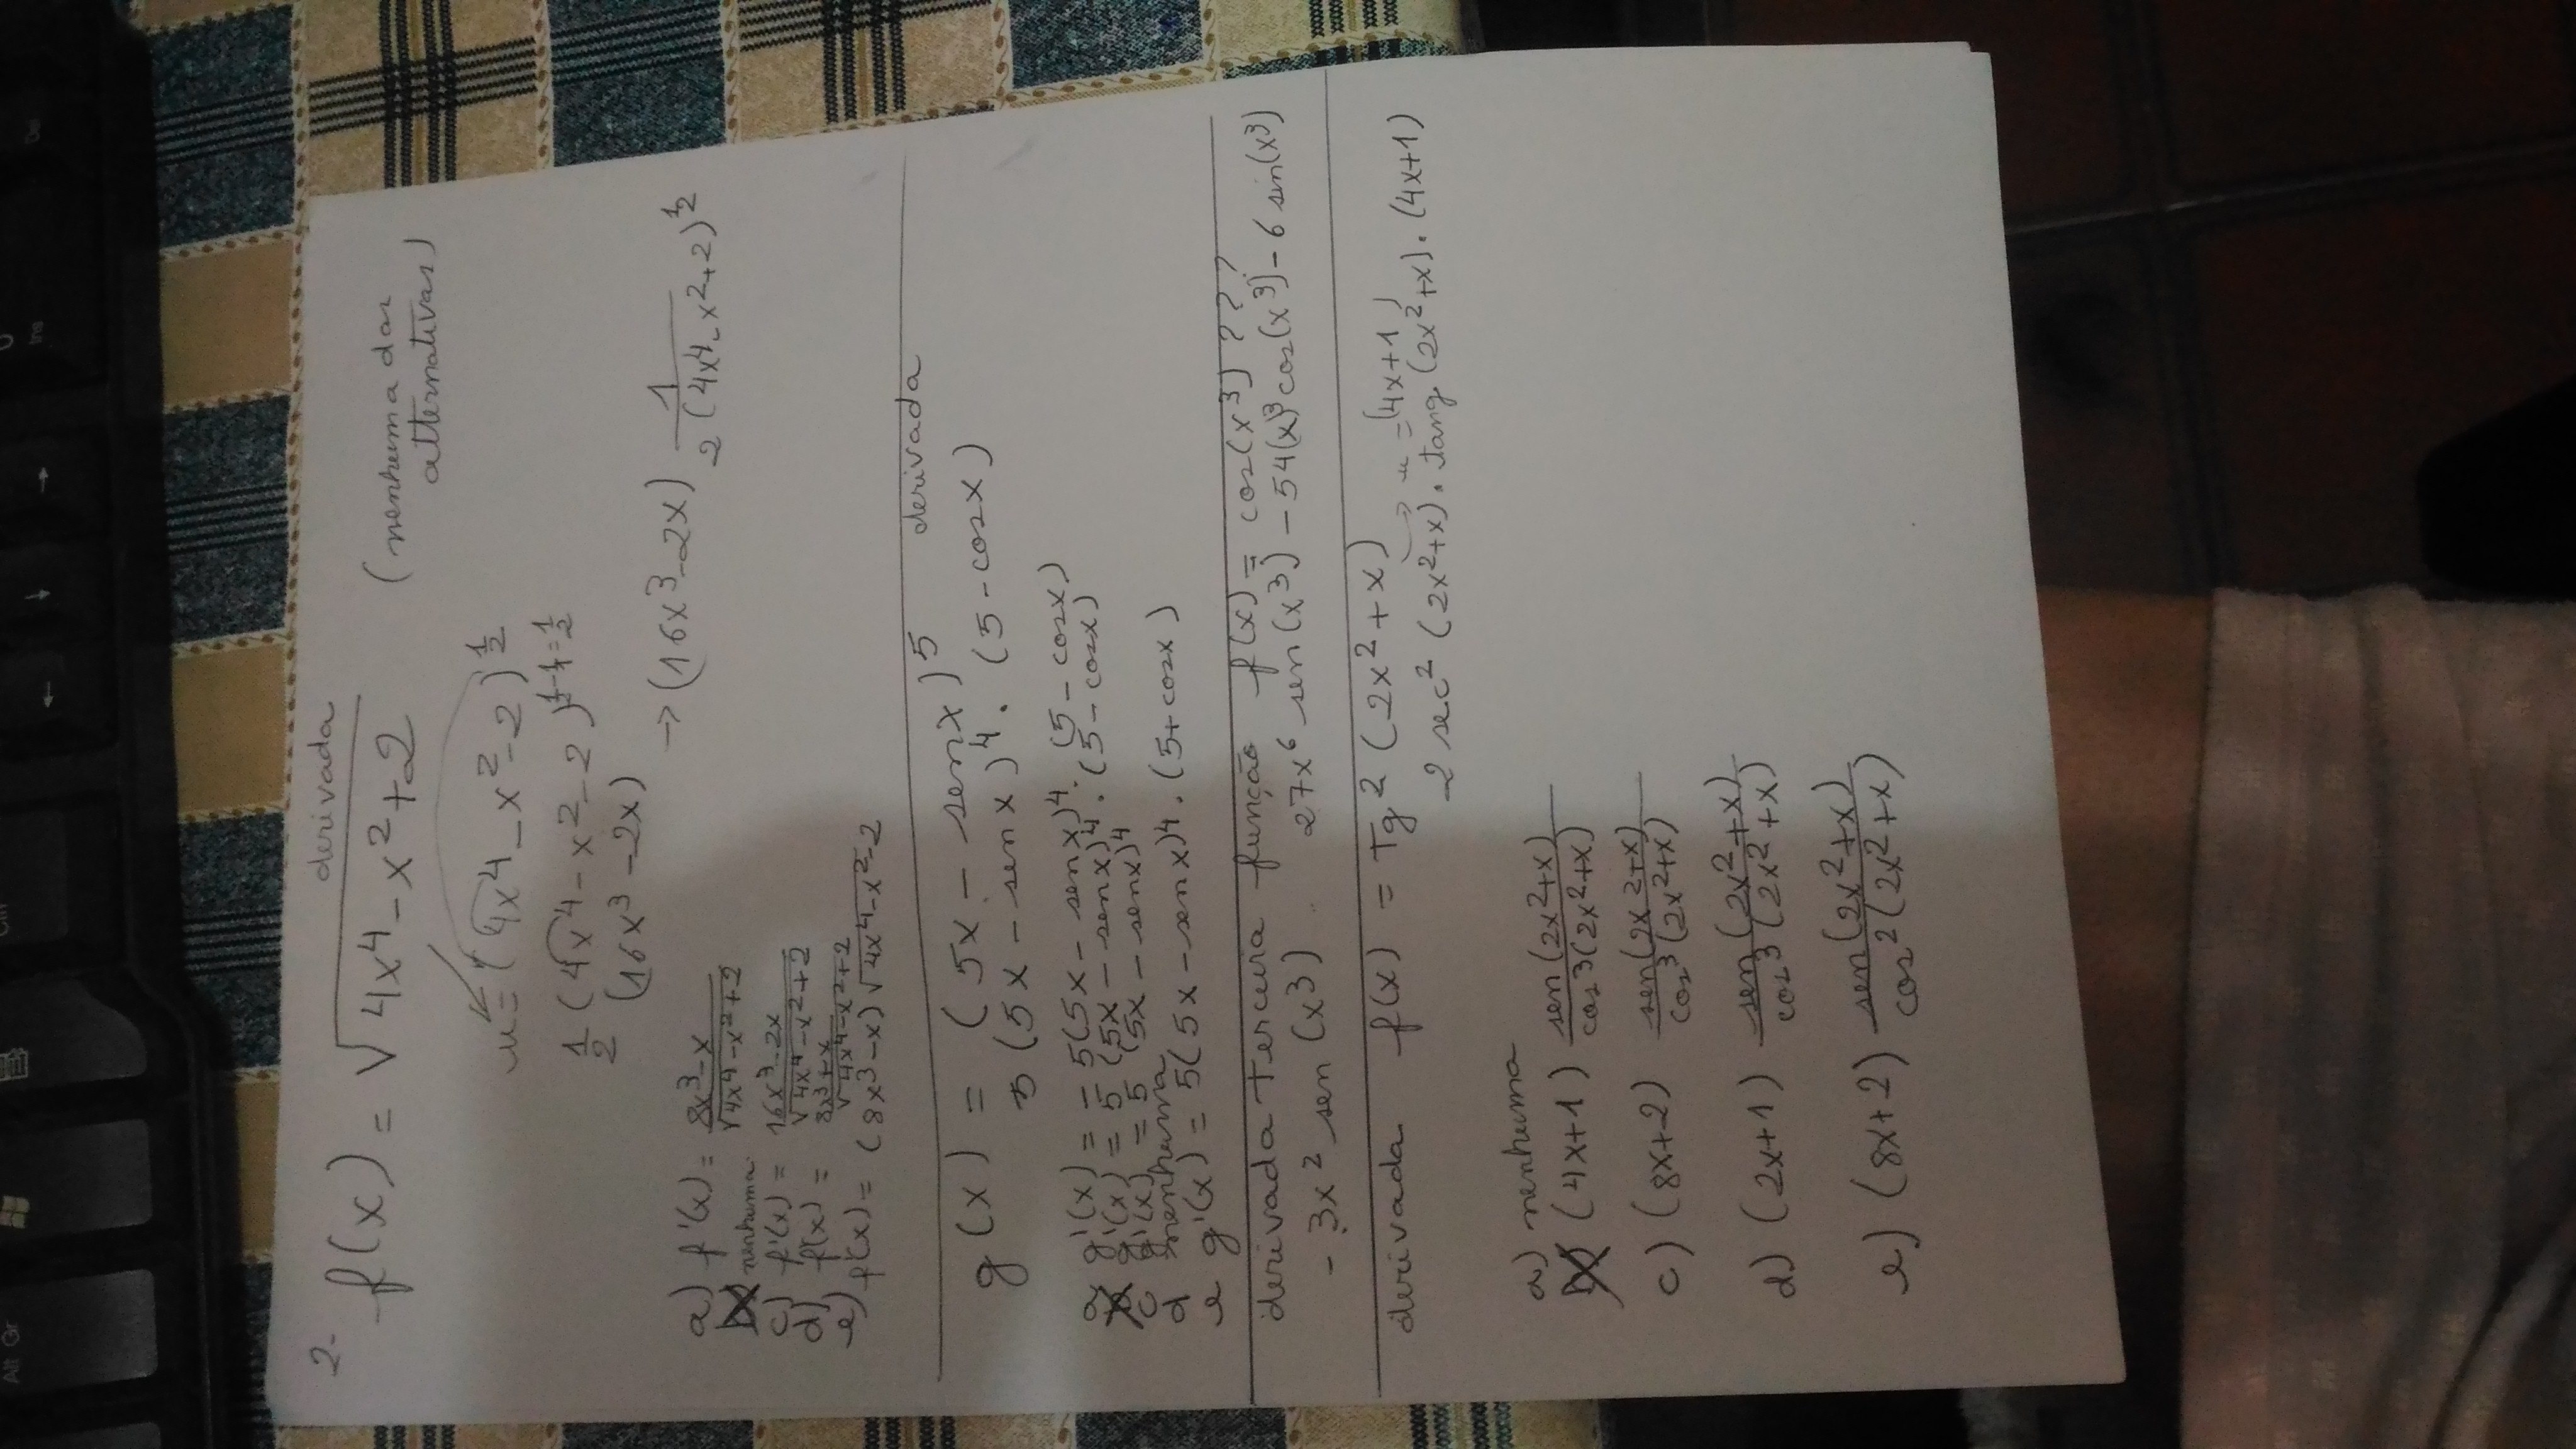 derivada
2- f(x) = √4x⁴ - x² + 2 (nenhuma das
alternativas)
u = (4x⁴ - x² - 2)^½
½ (4x⁴ - x² - 2)^½-1=½
(16x³ - 2x)
→ (16x³ - 2x) 1/2(4x⁴ - x² + 2)^½
a) f'(x) = 8x³ - x/√4x⁴ - x² + 2
b) nenhuma.
c) f'(x) = 16x³ - 2x/√4x⁴ - x² + 2
d) f'(x) = 8x³ + x/√4x⁴ - x² + 2
e) f'(x) = (8x³ - x) √4x⁴ - x² - 2
g(x) = (5x - sen x)⁵ derivada
5 (5x - sen x)⁴ . (5 - cos x)
a g'(x) = - 5(5x - sen x)⁴ . (5 - cos x)
b g'(x) = 5 (5x - sen x)⁴ . (5 - cos x)
c g'(x) = 5 (5x - sen x)⁴
d nenhuma
e g'(x) = 5(5x - sen x)⁴ . (5 + cos x)
derivada Terceira função f(x) = cos(x³) ???
- 3x² sen (x³) 27x⁶ sen (x³) - 54(x)³ cos(x³) - 6 sin(x³)
derivada f(x) = Tg² (2x² + x)
→ u = (4x+1)
2 sec² (2x² + x) . tang (2x² + x) . (4x+1)
a) nenhuma
b) (4x+1) sen (2x² + x)/cos³ (2x² + x)
c) (8x+2) sen (2x² + x)/cos³ (2x² + x)
d) (2x+1) sen (2x² + x)/cos³ (2x² + x)
e) (8x+2) sen (2x² + x)/cos² (2x² + x)
Alt Gr
Ins